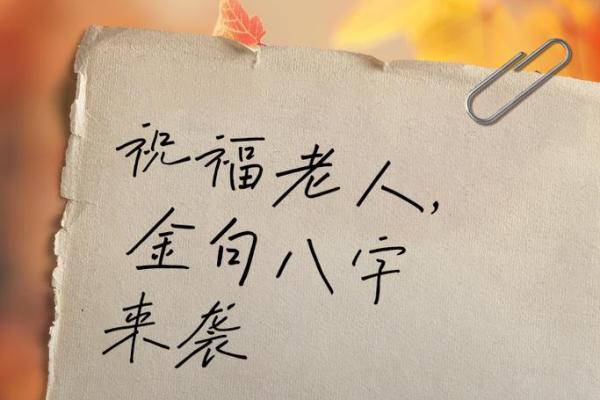 祝福老人,
金句八字
来袭